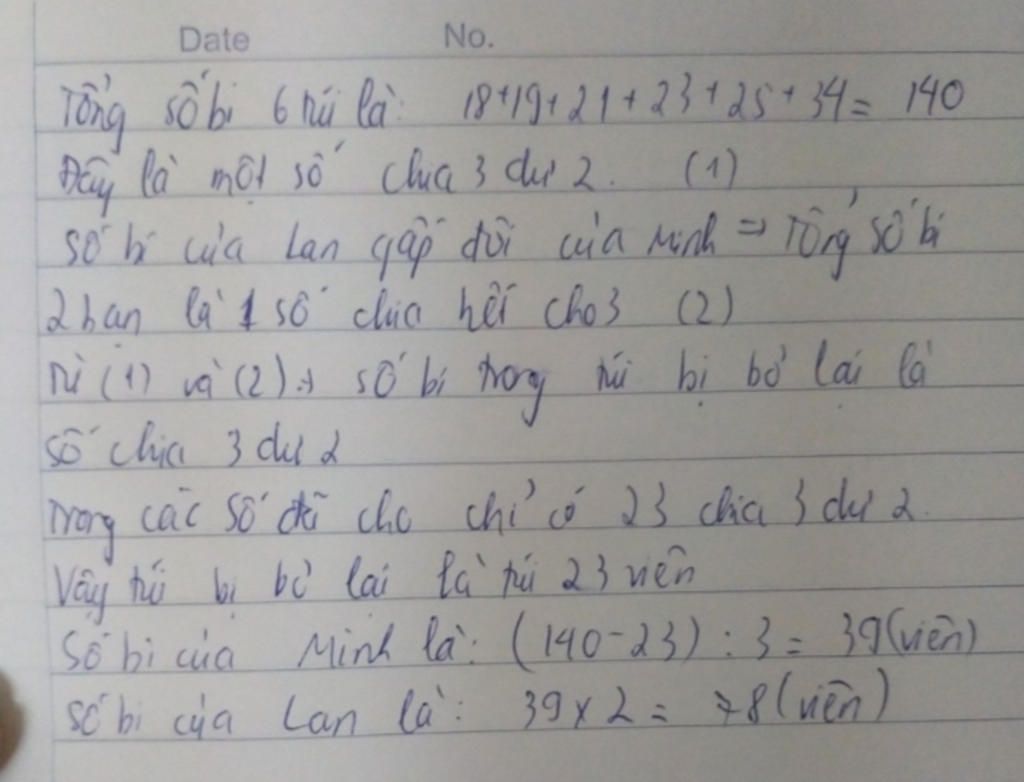 Date No.
Tổng số bi 6 túi là: 18+19+21+23+25+34= 140
Đây là một số chia 3 dư 2. (1)
Số bi của Lan gấp đôi của Minh => Tổng số bi
2 bạn là 1 số chia hết cho 3 (2)
Từ (1) và (2) => số bi trong túi bị bỏ lại là
số chia 3 dư 2
Trong các số đã cho chỉ có 23 chia 3 dư 2.
Vậy túi bị bỏ lại là túi 23 viên
Số bi của Minh là: (140-23) : 3 = 39 (viên)
Số bi của Lan là: 39 x 2 = 78 (viên)